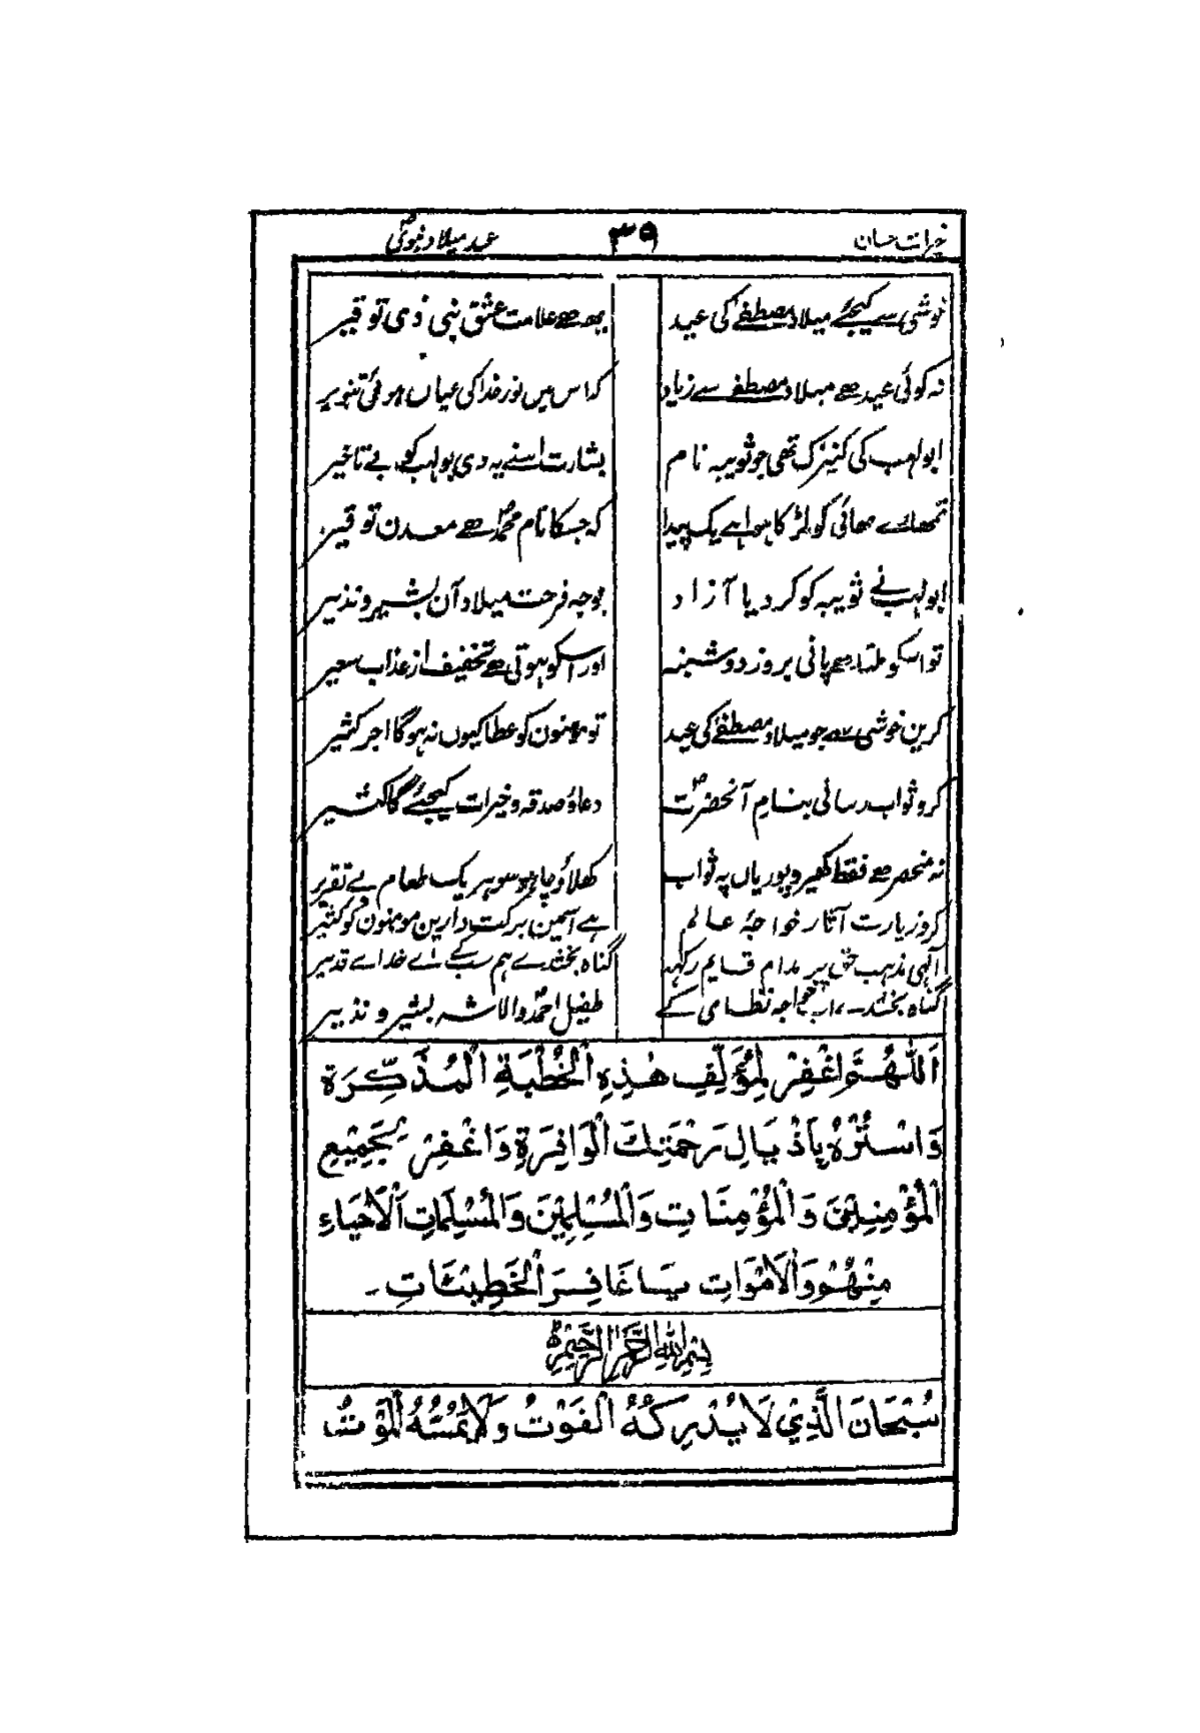 خیرات حسان ۳۹ عید میلاد نبویؐ
خوشی سے کیجئے میلاد مصطفےٰ کی عید یہ ہے علامت عشق نبی ذی توقیر
نہ کوئی عید ہے میلاد مصطفےٰ سے زیاد کہ اس میں نور خدا کی عیاں ہوئی تنویر
ابو لہب کی کنیزک تھی جو ثویبہ نام بشارت اسنے یہ دی بولہب کو بے تاخیر
تمھارے بھائی کو لڑکا ہوا ہے یک پیدا کہ جسکا نام محمدؐ ہے معدن توقیر
ابولہب نے ثویبہ کو کر دیا آزاد بوجہ فرحت میلاد آن بشیر و نذیر
تو اسکو ملتا ہے پانی بروز دوشنبہ اور اسکو ہوتی ہے تخفیف از عذاب سعیر
کریں خوشی سے جو میلاد مصطفےٰ کی عید تو مومنون کو عطا کیوں نہ ہوگا اجر کثیر
کرو ثواب رسانی بنام آنحضرتؐ دعاؤ صدقہ و خیرات کیجئے گا کثیر
نہ منحصر ہے فقط کھیر و پوریاں پہ ثواب کھلاؤ چاہو سو ہر یک طعام بے تقریر
کرو زیارت آثار خواجۂ عالم ہے اسمین برکت دارین مومنون کو کثیر
الٰہی مذہب حق پر مدام قایم رکھہ گناہ بخشدے ہم سب کے اے خداے قدیر
گناہ بخشدے اب خواجہ نظامی کے طفیل احمدؐ والا شہ بشیر و نذیر
اَللّٰهُمَّ اغْفِرْ لِمُؤَلِّفِ هٰذِهِ الْخُطْبَةِ الْمُذَكِّرَةِ
وَاسْتُرْهُ بِاَذْيَالِ رَحْمَتِكَ الْوَافِرَةِ وَاغْفِرْ لِجَمِيْعِ
الْمُؤْمِنِيْنَ وَالْمُؤْمِنَاتِ وَالْمُسْلِمِيْنَ وَالْمُسْلِمَاتِ اَلْاَحْيَاءِ
مِنْهُمْ وَالْاَمْوَاتِ يَا غَافِرَ الْخَطِيْئَاتِ ۔
بِسْمِ اللّٰهِ الرَّحْمٰنِ الرَّحِيْمِ
سُبْحَانَ الَّذِيْ لَا يُدْرِكُهُ الْفَوْتُ وَلَا يَمُسُّهُ الْمَوْتُ